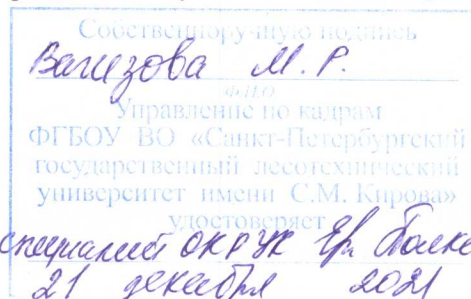 Собственноручную подпись
Вагизова М. Р.
Ф.И.О.
Управление по кадрам
ФГБОУ ВО «Санкт-Петербургский
государственный лесотехнический
университет имени С.М. Кирова»
удостоверяет
специалист ОКР УК
21 декабря 2021